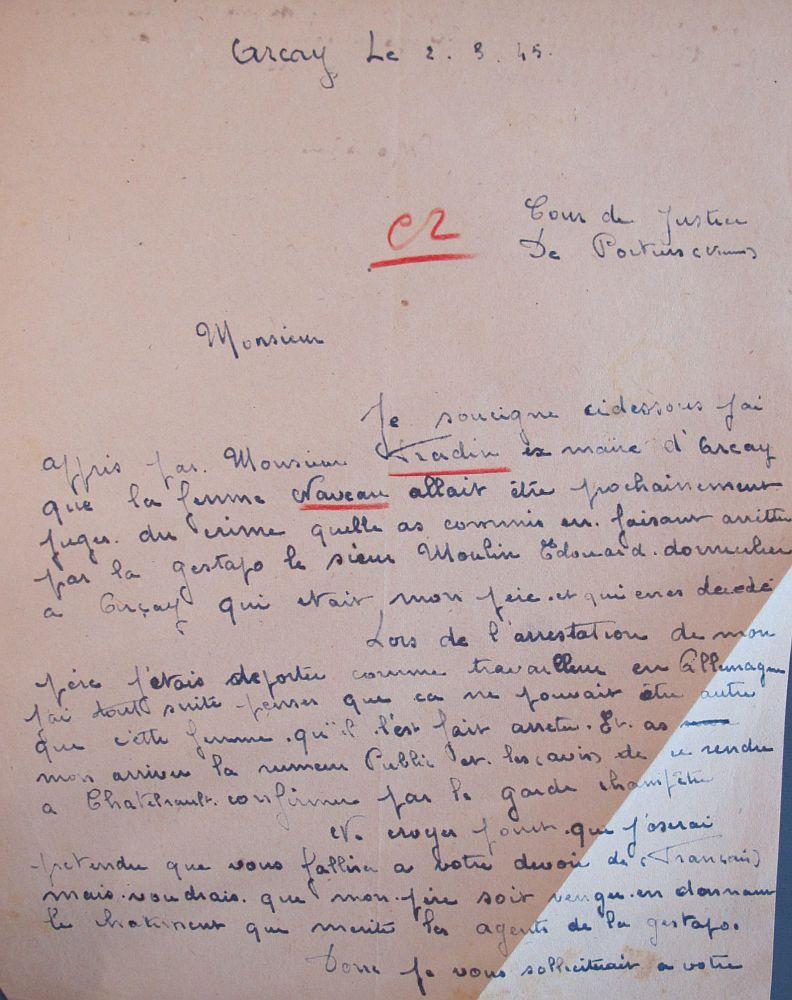 Arcay Le 2. 3. 45.
CR
Cour de Justice
De Poitiers (Vienne)
Monsieur
Je soucigne cidessous j'ai
appris par. Monsieur Fradin ex maire d'Arcay
que la femme Naveau allait être prochainement
juger. du crime quelle as commis en. faisant arrêter
par la gestapo le sieur Moulin Edouard. domicilier
a Arçay qui etait mon père. et qui en es decedé
Lors de l'arrestation de mon
père j'étais deporter comme travailleur en Allemagne
j'ai tout suite penser que ca ne pouvait être autre
que cette femme. qu'il l'est fait arreter. Et as
mon arriver la rumeur Public et les avis de ce rendre
a Chatelrault. confirmer par le garde champêtre
Ne croyer point. que j'oserai
pretendre que vous fallira a votre devoir de (Français)
mais. voudrais. que mon. père soit venger. en donnant
le chatiment que merite les agents de la gestapo.
Donc je vous solliciterait a votre